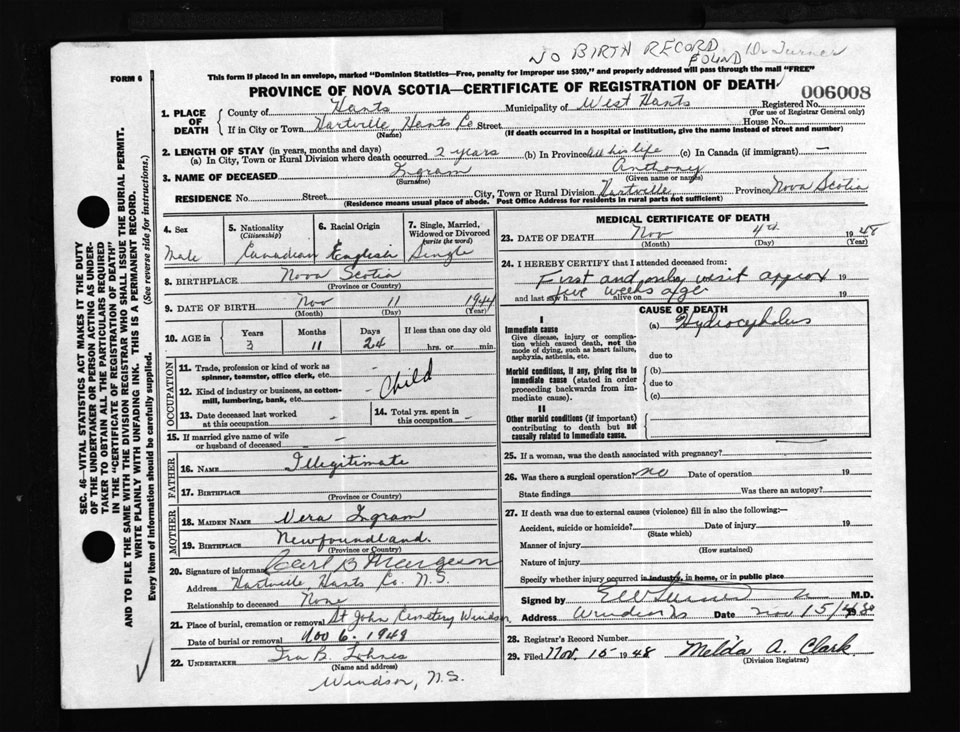 NO BIRTH RECORD FOUND Dr Turner
FORM 6
This form if placed in an envelope, marked "Dominion Statistics—Free, penalty for improper use $300," and properly addressed will pass through the mail "FREE"
PROVINCE OF NOVA SCOTIA—CERTIFICATE OF REGISTRATION OF DEATH 006008
1. PLACE OF DEATH
County of Hants Municipality of West Hants Registered No.
(For use of Registrar General only)
If in City or Town Hartville, Hants Co Street House No.
(Name) (If death occurred in a hospital or institution, give the name instead of street and number)
2. LENGTH OF STAY (in years, months and days)
(a) In City, Town or Rural Division where death occurred 2 years (b) In Province All his life (c) In Canada (if immigrant) —
3. NAME OF DECEASED Ingram Anthony
(Surname) (Given name or names)
RESIDENCE No. Street City, Town or Rural Division Hartville, Province Nova Scotia
(Residence means usual place of abode. Post Office Address for residents in rural parts not sufficient)
4. Sex Male
5. Nationality (Citizenship) Canadian
6. Racial Origin English
7. Single, Married, Widowed or Divorced (write the word) Single
8. BIRTHPLACE Nova Scotia
(Province or Country)
9. DATE OF BIRTH Nov 11 1944
(Month) (Day) (Year)
10. AGE in Years 3 Months 11 Days 24 If less than one day old
hrs. or min.
OCCUPATION
11. Trade, profession or kind of work as spinner, teamster, office clerk, etc. -
12. Kind of industry or business, as cotton-mill, lumbering, bank, etc. - Child
13. Date deceased last worked at this occupation -
14. Total yrs. spent in this occupation -
15. If married give name of wife or husband of deceased - -
FATHER
16. NAME Illegitimate
17. BIRTHPLACE
(Province or Country)
MOTHER
18. MAIDEN NAME Vera Ingram
19. BIRTHPLACE Newfoundland.
(Province or Country)
20. Signature of informant Carl B
Address Hartville Hants Co. N.S.
Relationship to deceased None
21. Place of burial, cremation or removal St John Cemetery Windsor
Date of burial or removal Nov 6. 1948
22. UNDERTAKER Ira B. Lohnes
(Name and address)
Windsor, N.S.
MEDICAL CERTIFICATE OF DEATH
23. DATE OF DEATH Nov 4th 1948
(Month) (Day) (Year)
24. I HEREBY CERTIFY that I attended deceased from:
First and only visit approx 19
and last saw h alive on 19
five weeks ago
CAUSE OF DEATH
I
Immediate cause
Give disease, injury or complication which caused death, not the mode of dying, such as heart failure, asphyxia, asthenia, etc.
(a) Hydrocyholus
due to
Morbid conditions, if any, giving rise to immediate cause (stated in order proceeding backwards from immediate cause).
(b)
due to
(c)
II
Other morbid conditions (if important) contributing to death but not causally related to immediate cause.
25. If a woman, was the death associated with pregnancy?
26. Was there a surgical operation? no Date of operation 19
State findings Was there an autopsy?
27. If death was due to external causes (violence) fill in also the following:—
Accident, suicide or homicide? Date of injury 19
(State which)
Manner of injury
(How sustained)
Nature of injury
Specify whether injury occurred in industry, in home, or in public place
Signed by M.D.
Address Windsor NS Date Nov 15/48
28. Registrar's Record Number
29. Filed Nov. 15 1948 Melda A. Clark
(Division Registrar)
SEC. 46—VITAL STATISTICS ACT MAKES IT THE DUTY
OF THE UNDERTAKER OR PERSON ACTING AS UNDER-
TAKER TO OBTAIN ALL THE PARTICULARS REQUIRED
IN THE "CERTIFICATE OF REGISTRATION OF DEATH"
AND TO FILE THE SAME WITH THE DIVISION REGISTRAR WHO SHALL ISSUE THE BURIAL PERMIT.
WRITE PLAINLY WITH UNFADING INK. THIS IS A PERMANENT RECORD.
Every item of information should be carefully supplied. (See reverse side for instructions.)